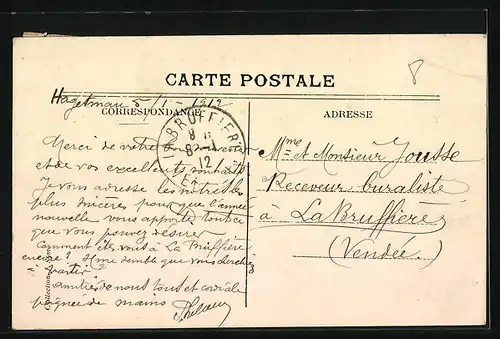 CARTE POSTALE
Hagetmau 5/1 - 1912
CORRESPONDANCE
ADRESSE
BRUFFIÈRE
8-1
12
Merci de votre bon souvenir
et de vos excellents souhaits
Je vous adresse les nôtres les
plus sincères pour que l'année
nouvelle vous apporte tout ce
que vous pouvez désirer
Comment êtes vous à La Bruffière
encore? Il me semble que vous cherchiez
à partir?
Amitiés de nous tout et cordiale
poignée de mains
Mme et Monsieur Jousse
Receveur buraliste
à La Bruffière
(Vendée)
Collection